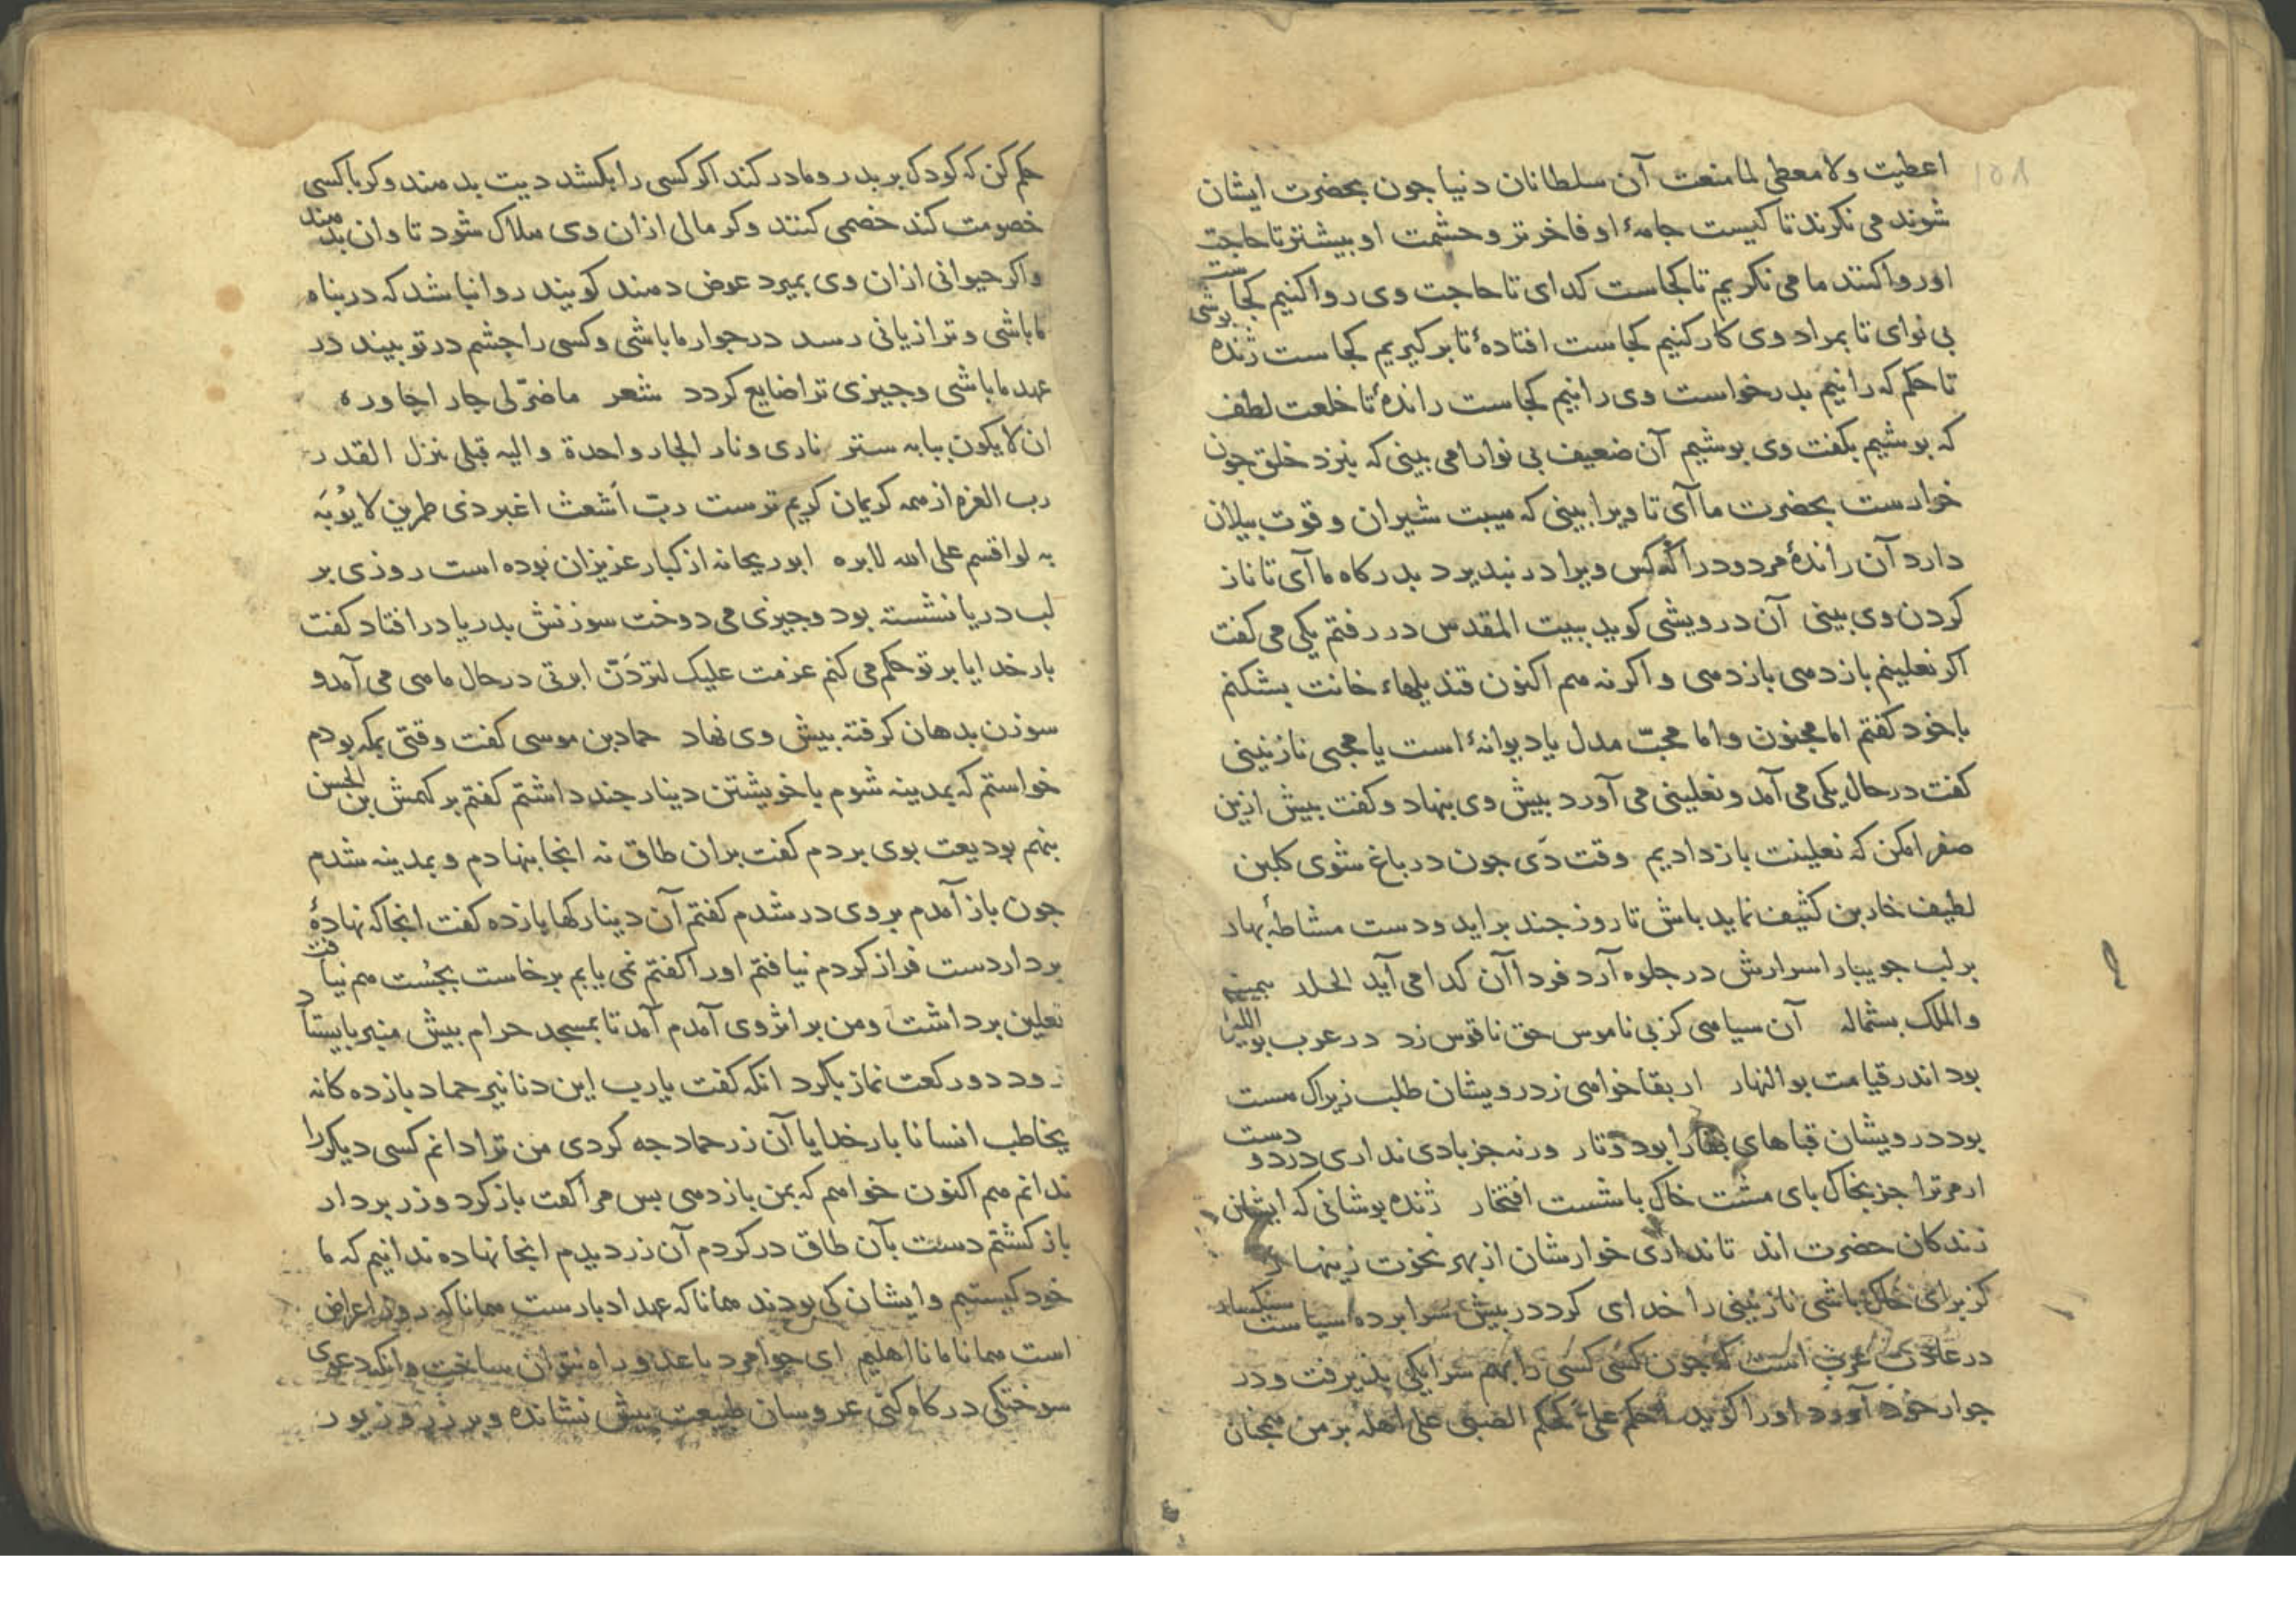 اعطیت ولا معطی لما منعت آن سلطانان دنیا جون بحضرت ایشان
شوند می نکرند تا کیست جامهٔ او فاخرتر و حشمت او بیشتر تا حاجت
او روا کنند ما می نکریم تا کجاست کدای تا حاجت وی روا کنیم کجاست
بی نوای تا بمراد وی کار کنیم کجاست افتادهٔ تا بر کیریم کجاست ژنده بوشی
تا حکم که رانیم بدرخواست وی رانیم کجاست راندهٔ تا خلعت لطف
که بوشیم بکفت وی بوشیم آن ضعیف بی نوا را می بینی که بنزد خلق جون
خوارست بحضرت ما آی تا ویرا بینی که هیبت شیران و قوت بیلان
دارد آن راندهٔ مردود را که کس ویرا در نبذیرد بدرکاه ما آی تا ناز
کردن وی بینی آن درویشی کوید ببیت المقدس در رفتم یکی می کفت
اکر نعلینم باز دهی باز دهی و اکر نه هم اکنون قندیلهاء خانت بشکنم
با خود کفتم اما مجنون و اما محبّ مدل یا دیوانهٔ است یا محبی نازنینی
کفت در حال یکی می آمد و نعلینی می آورد بیش وی بنهاد و کفت بیش ازین
صفرا مکن که نعلینت باز دادیم وقت دَی جون در باغ شوی کلبن
لطیف خاربن کثیف نماید باش تا روز جند براید و دست مشاطهٔ بهار
بر لب جویبار اسرارش در جلوه آرد فردا آن کدا می آید الخلد بیمینه
والملک بشماله آن سیاهی کز بی ناموس حق ناقوس زد در عرب بو اللیل
بود اندر قیامت بو النهار ار بقا خواهی ز درویشان طلب زیراک هست
بود درویشان قباهای بقا را بود و تار ورنه جز بادی نداری در دو دست
ار مرترا جز بخاک بای مشت خاک باشست افتخار ژنده بوشانی که ایشان
زندکان حضرت اند تا نداری خوارشان از بهر نخوت زینهار
کز برای خاک باشی نازنینی را خدای کرد در بیش سرابرده سیاست سنکسار
در عادت عرب است که جون کسی کسی را بهم سرایکی بذیرفت و در
جوار خود آورد او را کوید احکم علیّ حکم الصبی علی اهله بر من همجنان
حکم کن که کودک بر بدر و مادر کند اکر کسی را بکشد دیت بدهند و کر با کسی
خصومت کند خصمی کنند و کر مالی ازان وی هلاک شود تاوان بدهند
و اکر حیوانی ازان وی بمیرد عوض دهند کویند روا نباشد که در بناه
ما باشی و ترا زیانی رسد در جوار ما باشی و کسی را جشم در تو بیند در
عهد ما باشی و جیزی ترا ضایع کردد شعر ما ضرّ لی جار اجاوره
ان لا یکون ببابه ستر ناری و نار الجار واحدة والیه قبلی ینزل القدر
رب العزه از همه کریمان کریم ترست ربّ اَشعث اغبر ذی طمرین لا یُوبَه
به لو اقسم علی الله لابره ابو ریحانه از کبار عزیزان بوده است روزی بر
لب دریا نشسته بود و جیزی می دوخت سوزنش بدریا در افتاد کفت
بار خدایا بر تو حکم می کنم عزمت علیک لتردّنّ ابرتی در حال ماهی می آمد و
سوزن بدهان کرفته بیش وی نهاد حماد بن موسی کفت وقتی بمکه بودم
خواستم که بمدینه شوم با خویشتن دینار جند داشتم کفتم بر کهمش بن الحسن
بنهم بودیعت بوی بردم کفت بران طاق نه انجا بنهادم و بمدینه شدم
جون باز آمدم بر وی در شدم کفتم آن دینارکها باز ده کفت انجا که نهادهٔ
بردار دست فراز کردم نیافتم او را کفتم نمی یابم برخاست بجُست هم نیافت
نعلین برداشت و من بر اثر وی آمدم آمد تا بمسجد حرام بیش منبر بایستاد
زود دو رکعت نماز بکرد انکه کفت یا رب این دنانیر حماد باز ده کانه
یخاطب انسانا بار خدایا آن زر حماد جه کردی من ترا دانم کسی دیکر را
ندانم هم اکنون خواهم که بمن باز دهی بس مرا کفت باز کرد و زر بردار
باز کشتم دست بآن طاق در کردم آن زر دیدم انجا نهاده ندانیم که ما
خود کیستیم و ایشان کی بودند همانا که عهد ادبارست همانا که روز اعراض
است همانا ما نا اهلیم ای جوامرد با عدو راه نتوان ساخت وانکه دعوی
سوختکی درکاه کنی عروسان طبیعت بیش نشانده و بر زر و زیور